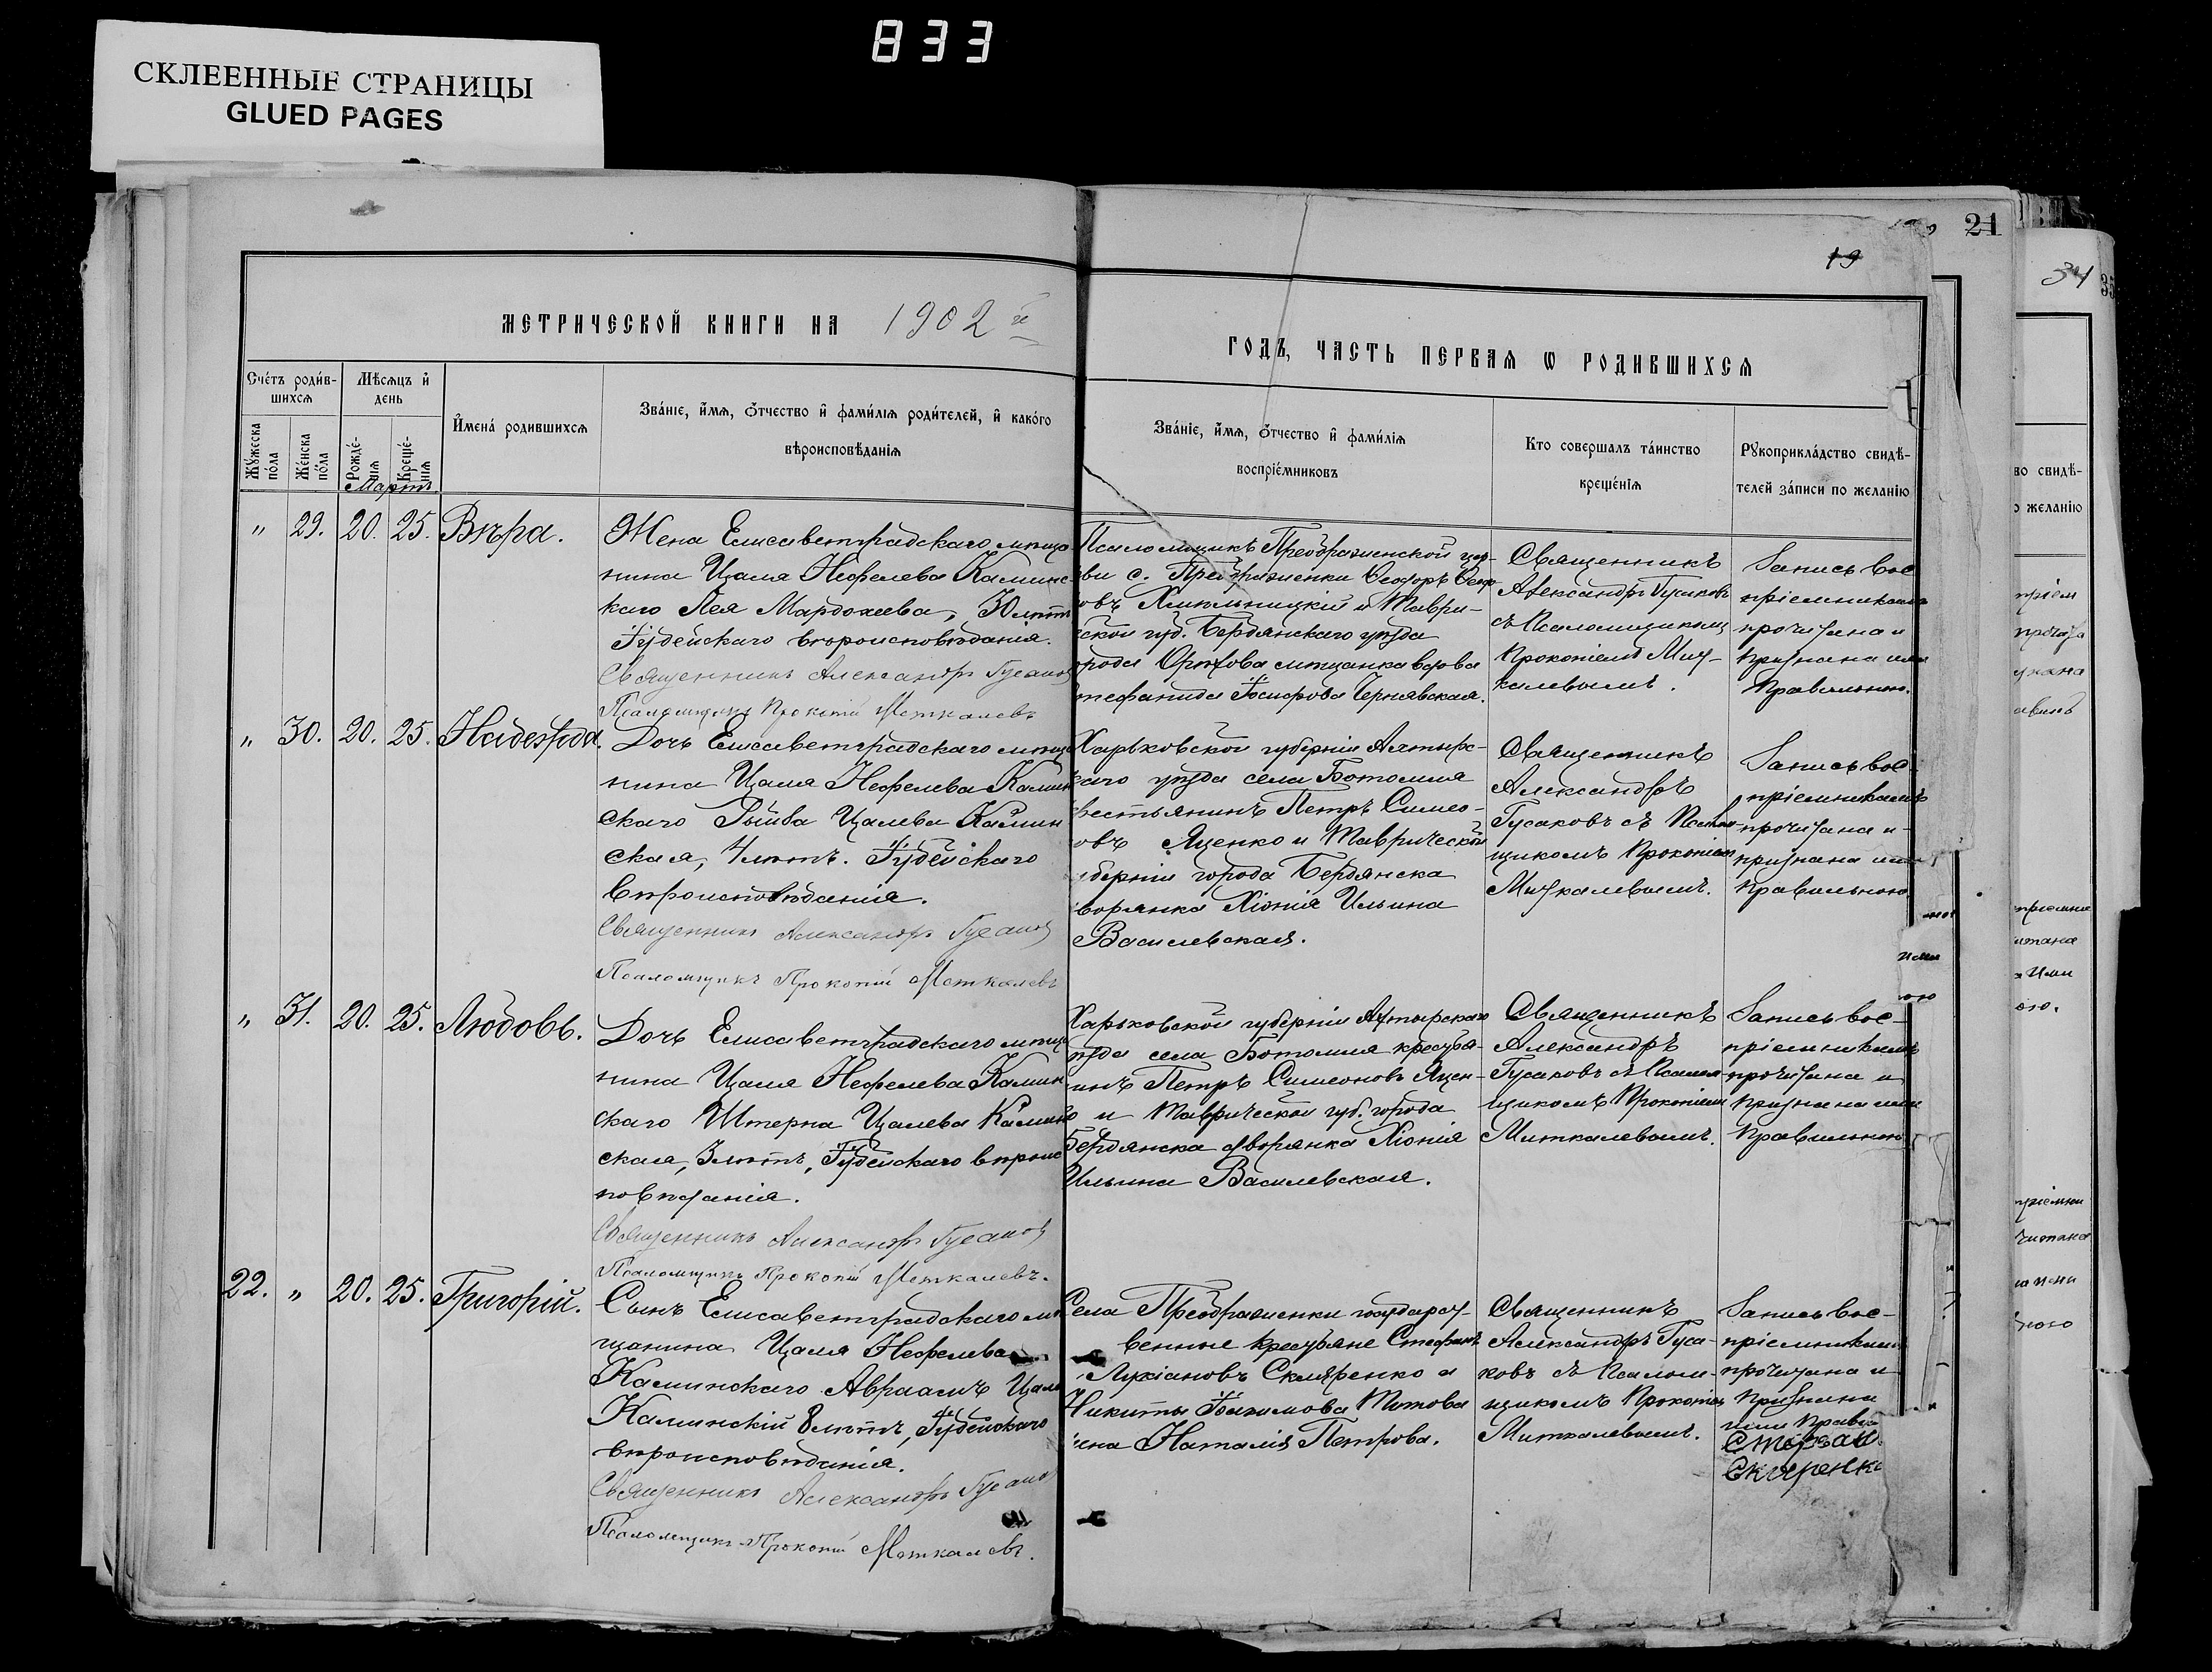 833
СКЛЕЕННЫЕ СТРАНИЦЫ
GLUED PAGES
21
19
34
35
МЕТРИЧЕСКОЙ КНИГИ НА 1902 й
ГОДЪ, ЧАСТЬ ПЕРВАЯ Ѡ РОДИВШИХСЯ
Сче́тъ роди́в-
шихсѧ
Мѣ́сѧцъ и҆
день
И҆мена́ родившихсѧ
Зва́нїе, и҆́мѧ, ѻ҆́тчество и҆ фами́лїѧ роди́телей, и҆ како́го
вѣроисповѣ́данїѧ
Мꙋ́жеска
по́ла
Же́нска
по́ла
Рожде́-
нїѧ
Креще́-
нїѧ
Зва́нїе, и҆́мѧ, ѻ҆́тчество и҆ фами́лїѧ
воспрїе́мниковъ
Кто соверша́лъ та́инство
креще́нїѧ
Рꙋкоприкла́дство свидѣ́-
телей за́писи по жела́нїю
Мартъ
" 29. 20. 25. Вѣра.
Жена Елисаветградскаго мѣща
нина Цаля Нефелева Каминс
каго Лея Мардохеева, 30 лѣтъ
Іудейскаго вѣроисповѣданія.
Священникъ Александръ Гусаковъ
Псаломщикъ Прокопій Миткалевъ
Псаломщикъ Преображенской цер-
кви с. Преображенки Ѳеодоръ
овъ Хмѣльницкій и Таври-
ской губ. Бердянскаго уѣзда
города Орѣхова мѣщанка вдова
Стефанида Чернявская.
Священникъ
Александръ Гусаковъ
съ Псаломщикомъ
Прокопіемъ Мит-
калевымъ.
Запись вос
пріемникамъ
прочитана и
признана ими
правильною.
" 30. 20. 25. Надежда.
Дочь Елисаветградскаго мѣща
нина Цаля Нефелева Камин
скаго Рыйва Цалева Камин
ская, 4 лѣтъ. Іудейскаго
вѣроисповѣданія.
Священникъ Александръ Гусаковъ
Псаломщикъ Прокопій Миткалевъ
Харьковской губерніи Ахтырс-
каго уѣзда села Ботомля
крестьянинъ Петръ Симео-
овъ Яценко и Таврической
губерніи города Бердянска
дворянка Хіонія Ильина
Василевская.
Священникъ
Александръ
Гусаковъ съ Псалом-
щикомъ Прокопіемъ
Миткалевымъ.
Запись вос-
пріемникамъ
прочитана и
признана ими
правильною
" 31. 20. 25. Любовь.
Дочь Елисаветградскаго мѣща
нина Цаля Нефелева Камин
скаго Штерна Цалева Камин
ская, 3 лѣтъ, Іудейскаго вѣроис
повѣданія.
Священникъ Александръ Гусаковъ
Псаломщикъ Прокопій Миткалевъ.
Харьковской губерніи Ахтырскаго
уѣзда села Ботомля крестья-
нинъ Петръ Симеоновъ Яцен-
ко и Таврической губ. города
Бердянска дворянка Хіонія
Ильина Василевская.
Священникъ
Александръ
Гусаковъ съ Псалом-
щикомъ Прокопіемъ
Миткалевымъ.
Запись вос-
пріемникамъ
прочитана и
признана ими
правильною
22. " 20. 25. Григорій.
Сынъ Елисаветградскаго мѣ
щанина Цаля Нефелева
Каминскаго Авраамъ Цале
Каминскій 8 лѣтъ, Іудейскаго
вѣроисповѣданія.
Священникъ Александръ Гусаковъ
Псаломщикъ Прокопій Миткалевъ.
Села Преображенки государст-
венные крестьяне Стефанъ
Лукіановъ Скляренко и
Никиты Титова
жена Наталія Петрова.
Священникъ
Александръ Гуса-
ковъ съ Псалом-
щикомъ Прокопіемъ
Миткалевымъ.
Запись вос-
пріемникамъ
прочитана и
признана
ими правил
Стефан
Скляренко
во свидѣ-
о желанїю